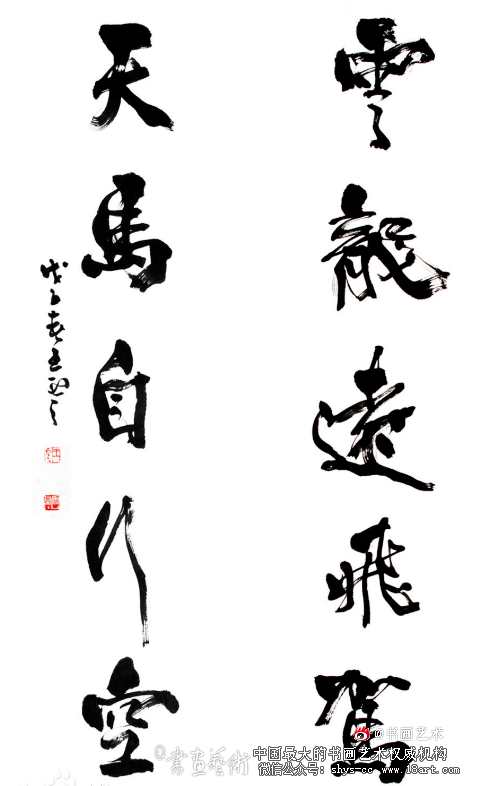 雲龍遠飛駕
天馬自行空
戊子春王
@书画艺术
書画藝術
中国最大的书画艺术权威机构
微信公众号: shys-cc www.18art.com